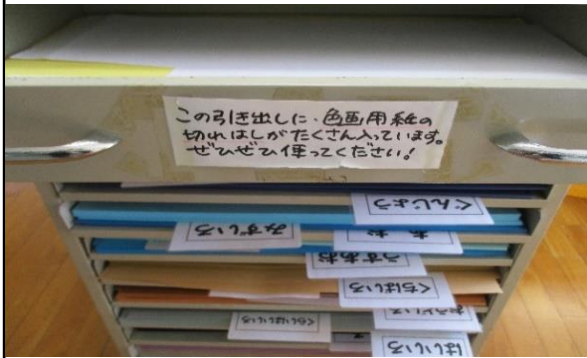 この引き出しに、色画用紙の
切れはしがたくさん入っています。
ぜひぜひ使ってください!
ぐんじょう
みずいろ
あお
うすあお
くちばいろ
おうどいろ
くらいはいいろ
はいいろ